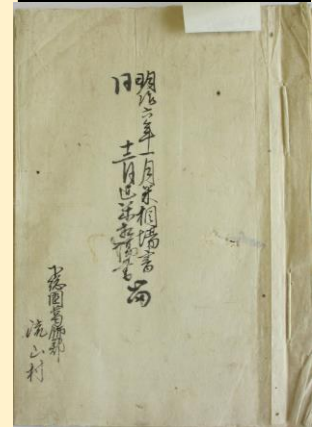 明治六年一月米相場書
同 十二月迄 相場書
下総国葛飾郡
流山村